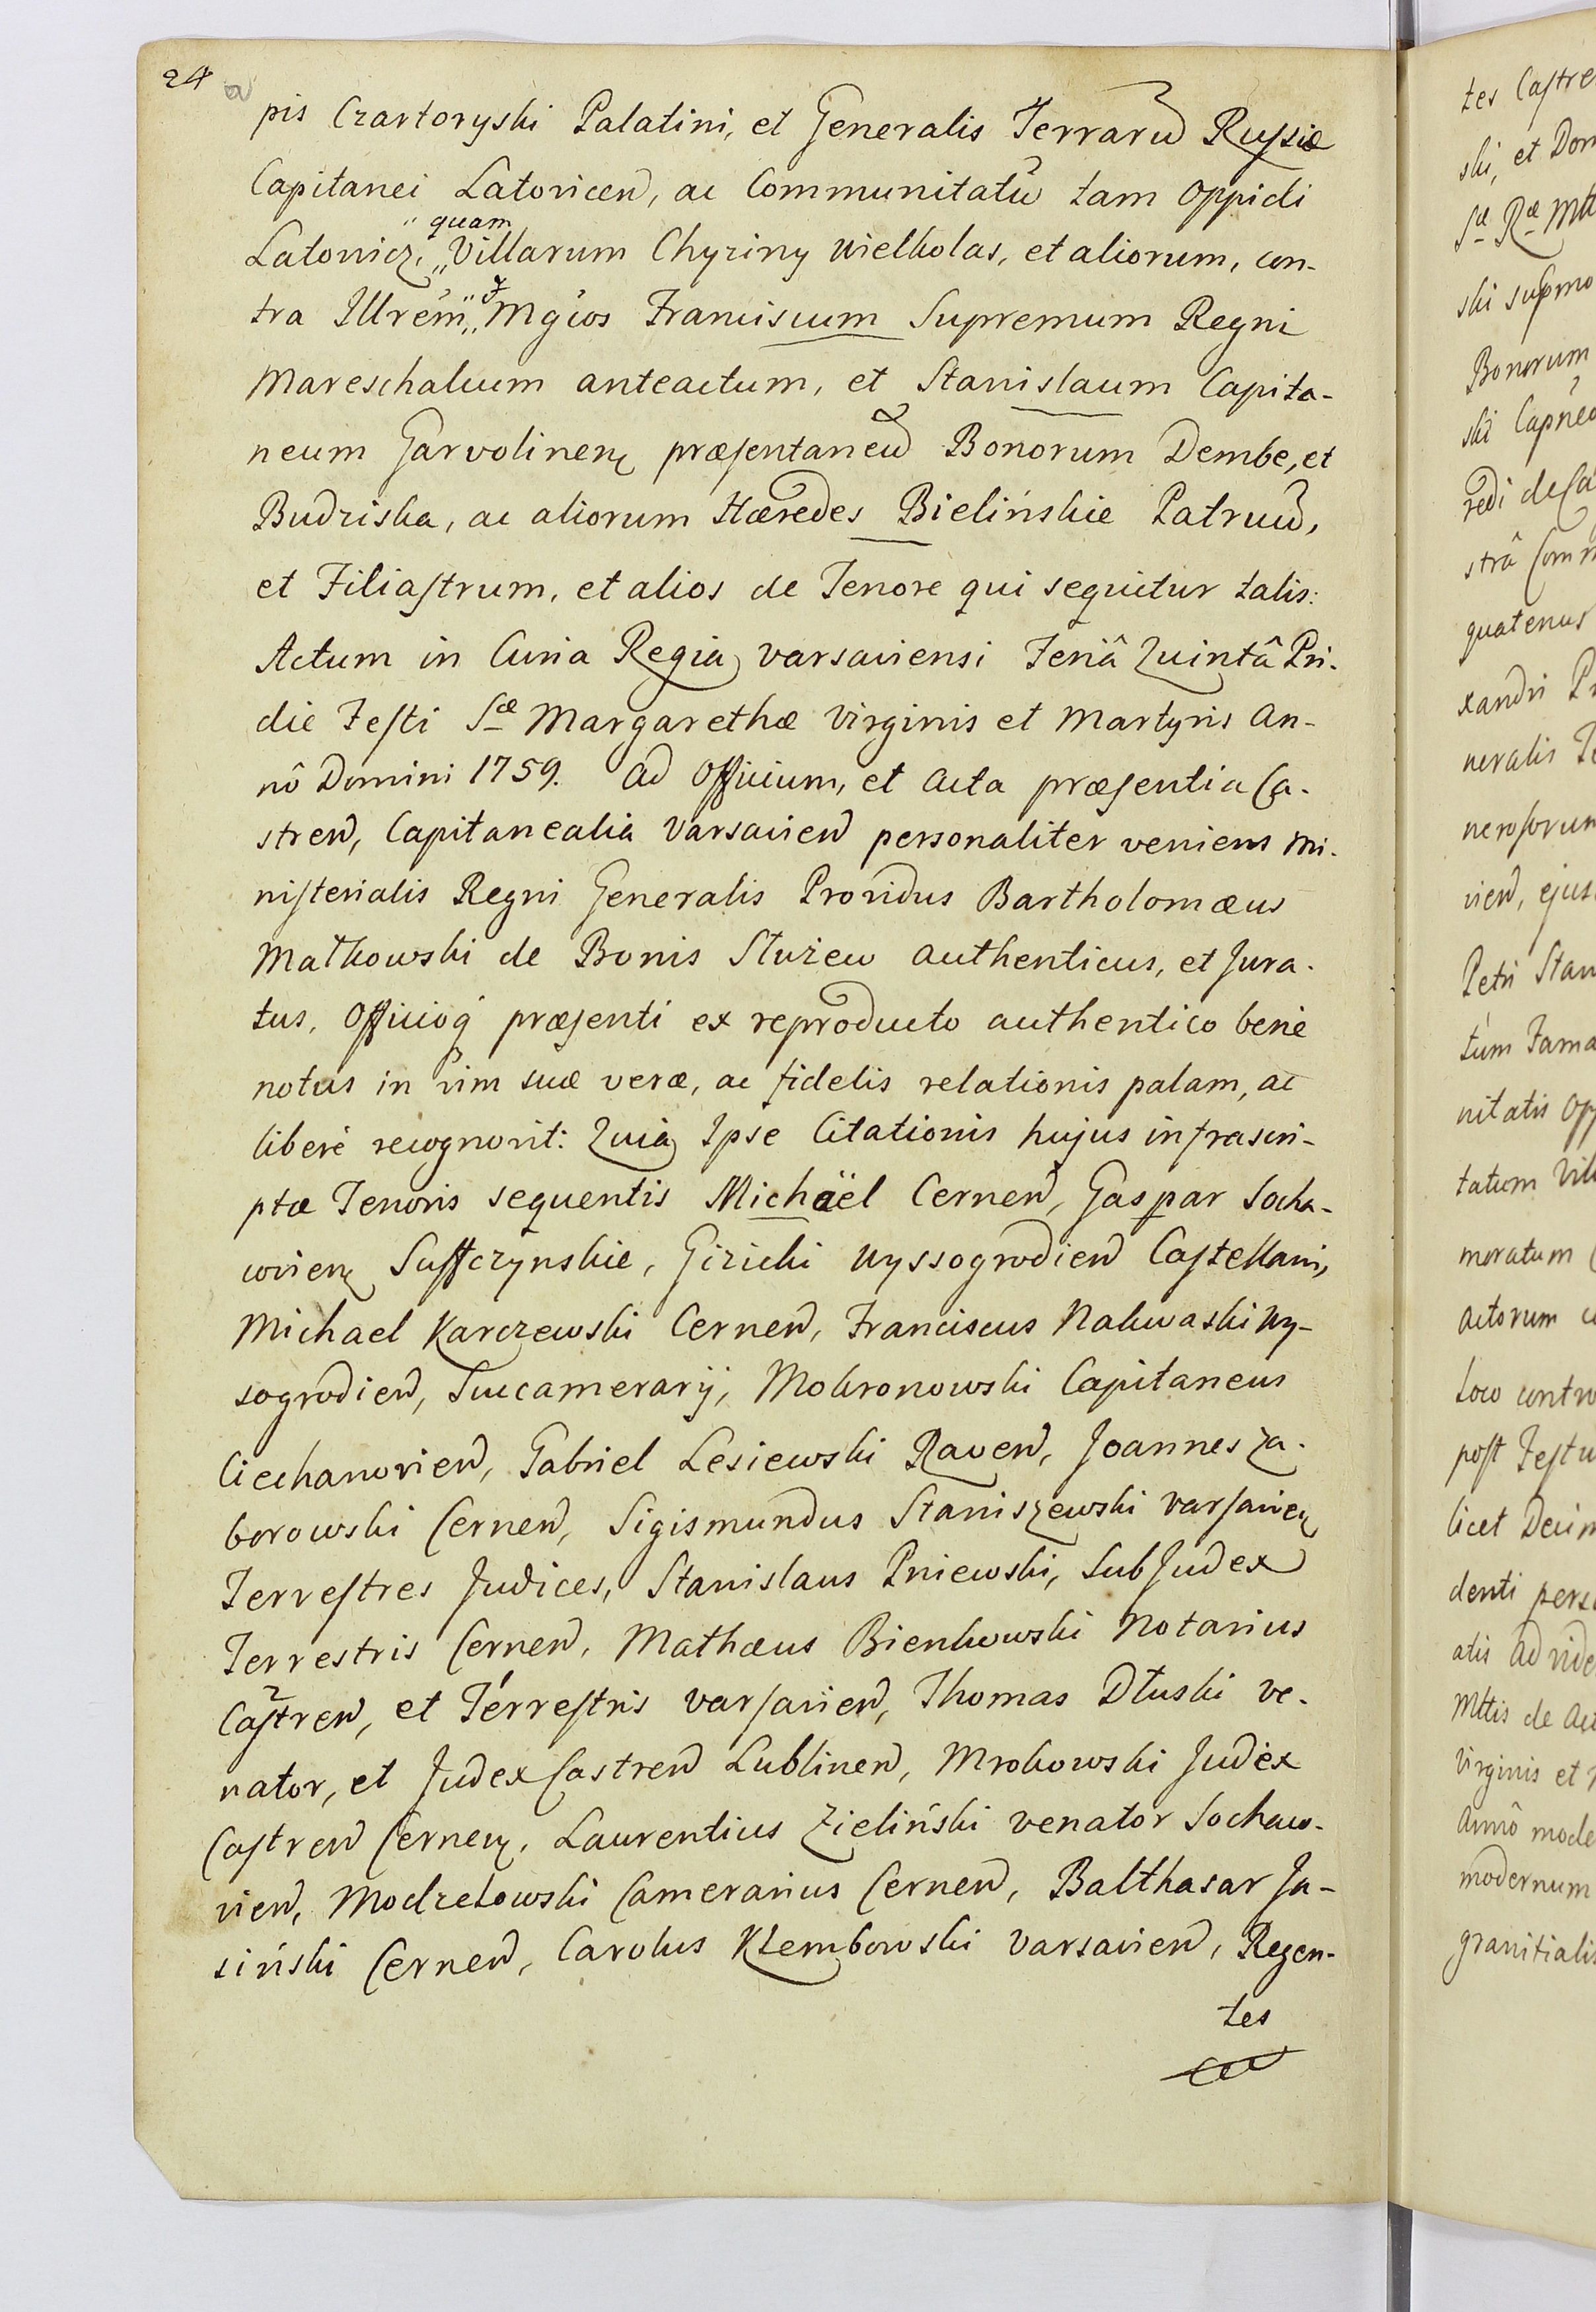 24
pis Czartoryski Palatini, et Generalis Terraru Russiæ
Capitanei Latovicen, ac Communitatu tam Oppidi
Latowicz, quam Villarum Chyziny Wielkolas, et aliorum, con-
tra Illrem, Mgcos Franciscum Supremum Regni
Mareschalcum anteactum, et Stanislaum Capita-
neum Garvolinen præsentaneu Bonorum Dembe, et
Budziska, ac aliorum Hæredes Bielińskie Patruu,
et Filiastrum, et alios de Tenore qui sequitur talis:
Actum in Curia Regia Varsaviensi Feriâ Quintâ Pri-
die Festi Sæ Margarethæ Virginis et Martyris An-
nô Domini 1759. Ad Officium, et Acta præsentia Ca-
stren, Capitanealia Varsavien personaliter veniens Mi-
nisterialis Regni Generalis Providus Bartholomæus
Małkowski de Bonis Stuzew authenticus, et Jura-
tus, Officioq præsenti ex reproducto authentico benè
notus in vim suæ veræ, ac fidelis relationis palam, ac
liberè recognovit: Quia Ipse Citationis hujus infrascri-
ptæ Tenoris sequentis Michaël Cernen, Gaspar Socha-
covien Suffczynskie, Gizicki Wyssogrodien Castellani,
Michael Karczewski Cernen, Franciscus Nakwaski Wy-
sogrodien, Succamerarij, Mokronowski Capitaneus
Ciechanovien, Gabriel Lesiewski Raven, Joannes Za-
borowski Cernen, Sigismundus Staniszewski Varsavien
Terrestres Judices, Stanislaus Pniewski, SubJudex
Terrestris Cernen, Mathæus Bienkowski Notarius
Castren, et Terrestris Varsavien, Thomas Dłuski Ve-
nator, et Judex Castren Lublinen, Mrokowski Judex
Castren Cernen, Laurentius Zieliński Venator Sochaw-
vien, Modzelowski Camerarius Cernen, Balthasar Ja-
siński Cernen, Carolus Kłembowski Varsavien, Regen-
tes